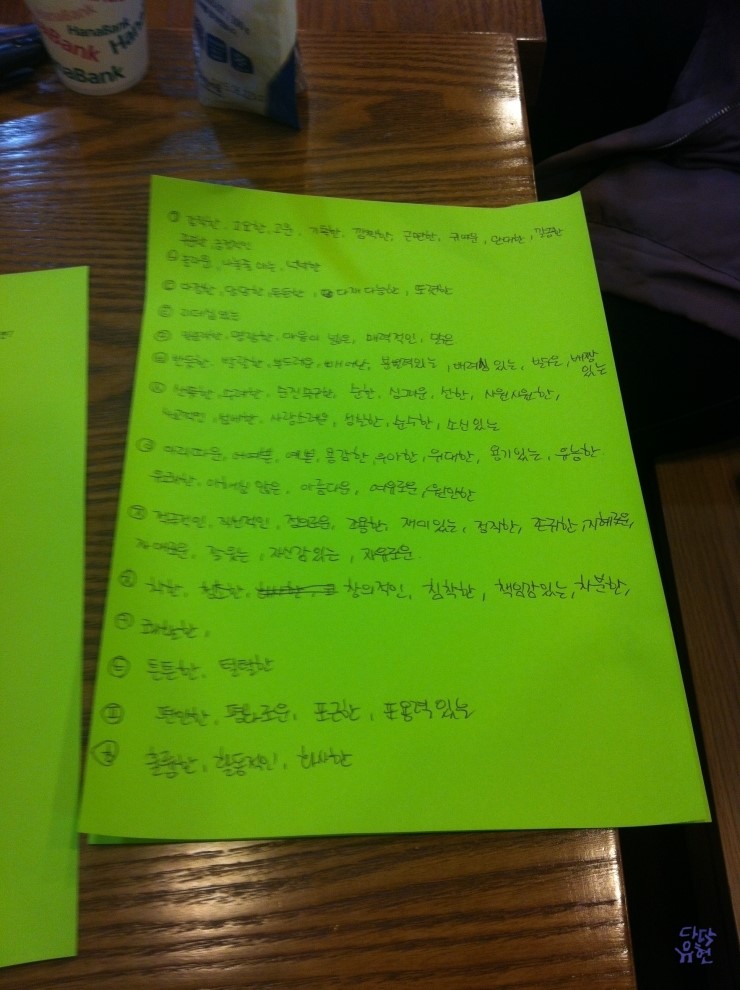 HanaBank
HanaBank
HanaBank
ㄱ 강직한, 고요한, 고운, 기특한, 깜찍한, 근면한, 귀여운, 관대한, 깔끔한
꾸준한, 긍정적인
ㄴ 놀라운, 나눔줄 아는, 넉넉한
ㄷ 다정한, 당당한, 든든한, 다재다능한, 또렷한
ㄹ 리더십있는
ㅁ 명랑한, 마음이 넓은, 매력적인, 맑은
ㅂ 반듯한, 발랄한, 부드러운, 빼어난, 분별력있는, 배려심 있는, 밝은, 배짱
있는
ㅅ 선량한, 수려한, 순진무구한, 순한, 싱그러운, 선한, 시원시원한,
사교적인, 섬세한, 사랑스러운, 성실한, 순수한, 소신있는
ㅇ 아리따운, 어여쁜, 예쁜, 용감한, 우아한, 위대한, 용기있는, 유능한
유쾌한, 이해심 많은, 아름다운, 여유로운, 원만한
ㅈ 적극적인, 정의로운, 조용한, 재미있는, 정직한, 존귀한, 지혜로운,
자애로운, 잘 웃는, 자신감 있는, 자유로운
ㅊ 착한, 청초한, 창의적인, 침착한, 책임감있는, 차분한,
ㅋ 쾌활한,
ㅌ 튼튼한, 털털한
ㅍ 편안한, 평화로운, 포근한, 포용력 있는
ㅎ 훌륭한, 활동적인, 화사한
다닥
유현